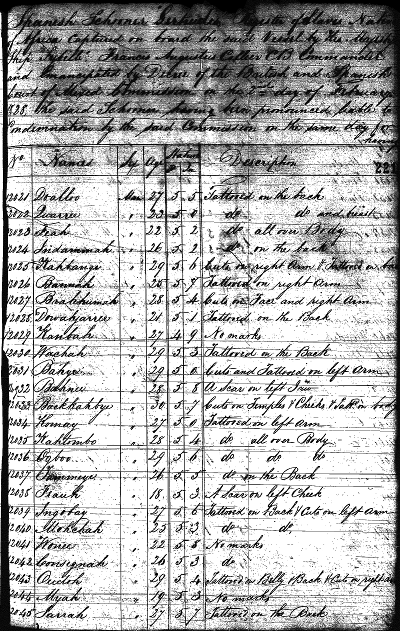 Spanish Schooner Gertrudes Register of Slaves Natives
of Africa Captured on board the said Vessel by the
Ship Francis Augustus Collier CB Commander
and Emancipated by Decree of the British and Spanish
Court of Mixed Commission on the day of February
1828 the said Schooner having been pronounced liable to
Condemnation by the said Commission on the same day for
having
No Names Sex Age Stature Description
F In
221
12021 Doalloo Man 27 5 5 Tattooed on the back
2022 Quarrie " 23 5 0 do do and breast
2023 " 22 5 2 do all over Body
2024 Indammah " 26 5 2 do on the back
2025 Kahhangi " 29 5 6 Cuts on right Arm & Tattooed on
2026 Bannah " 25 5 7 Tattooed on right arm
2027 Brahhumah " 28 5 4 Cuts on Face and right Arm
12028 Dowahjarree " 21 5 1 Tattooed on the Back
12029 Kanbah " 27 4 9 No marks
12030 Hoahah " 29 5 3 Tattooed on the Back
2031 Bahye " 29 5 0 Cuts and Tattooed on left Arm
2032 Bahnee " 28 5 8 A Scar on left
2033 Bockkahbye " 30 5 7 Cuts on Temples & Cheeks & Tatt on body
2034 Homay " 27 5 0 Tattooed on left arm
2035 Kahlombo " 28 5 4 do all over Body
2036 Ogboo " 29 5 6 do do do
2037 " 26 5 5 do on the Back
2038 " 18 5 3 A Scar on left Cheek
2039 Ingobay " 27 5 6 Tattooed on Back & Cuts on left Arm
12040 Mokchah " 25 5 3 do do
12041 " 22 5 5 No marks
12042 Consignah " 26 5 3 do
12043 " 29 5 4 Tattooed on Belly & Back & Cuts on right
12044 Myah " 19 5 3 No marks
12045 Sarrah " 27 5 7 Tattooed on the Back